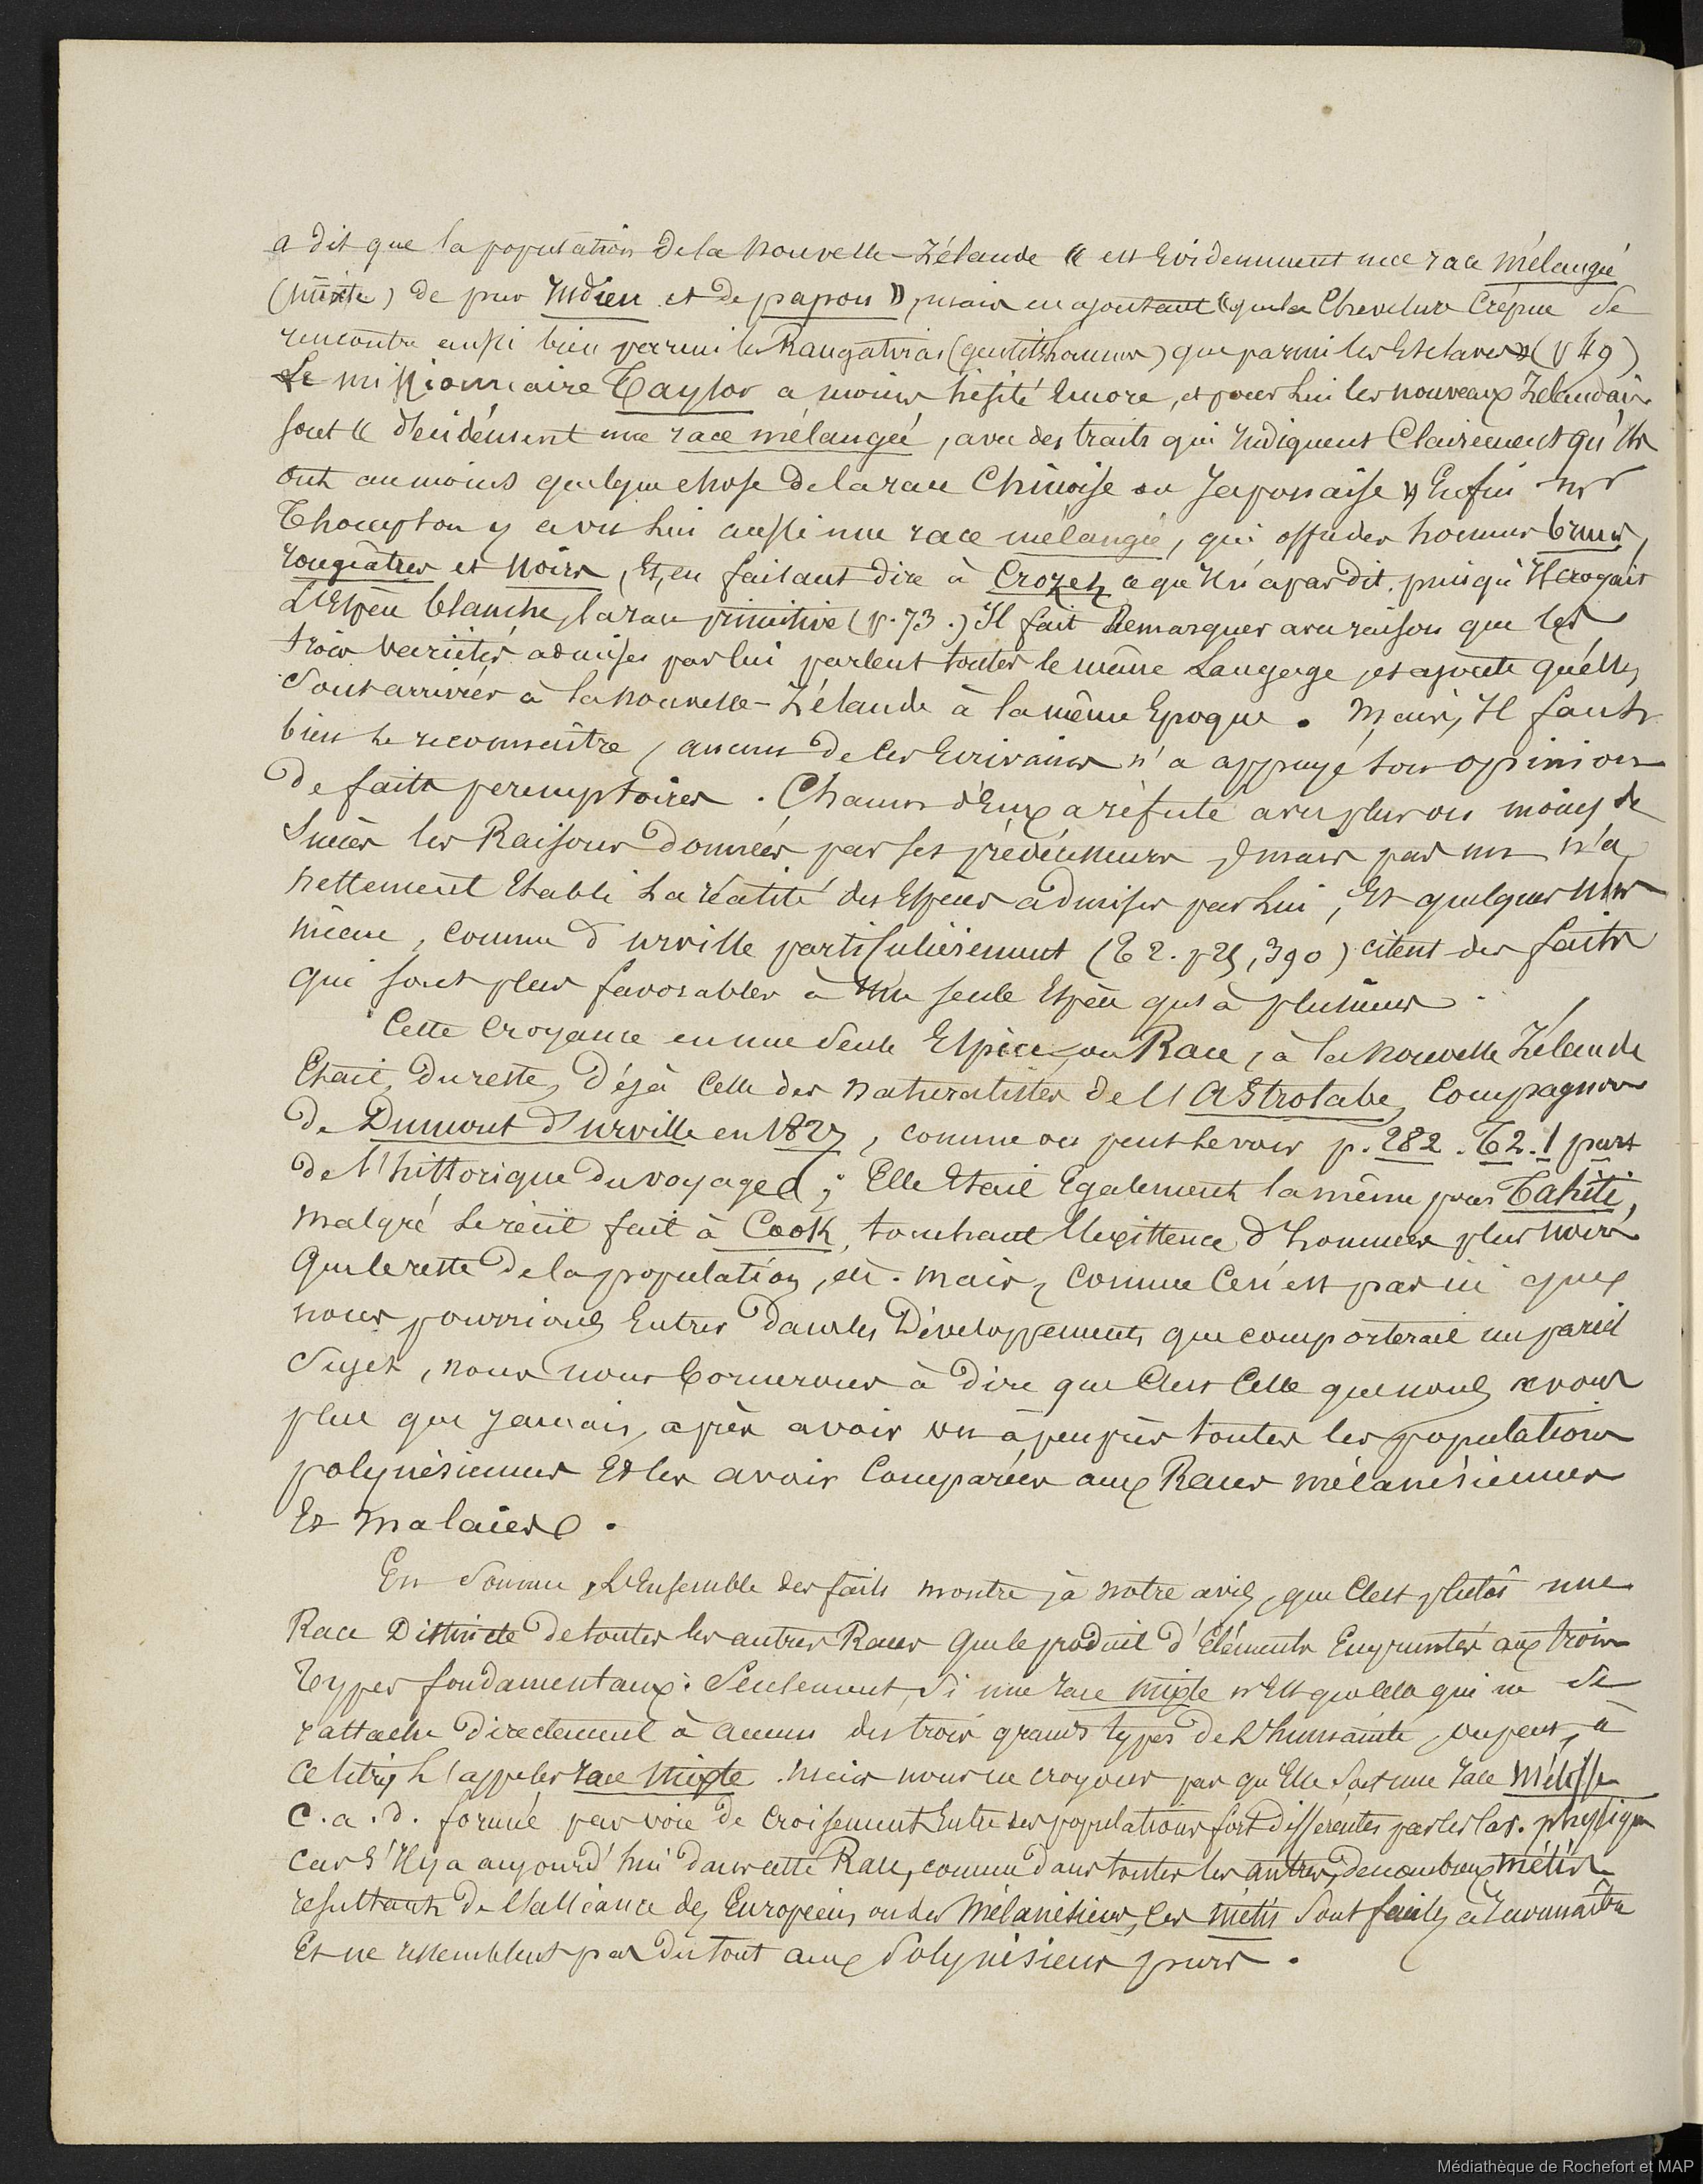 a dit que la population de la nouvelle-Zélande « est Evidemment une race mélangée
(mixte) de pur Indien et de papou », mais en ajoutant « que la Chevelure Crépue se
rencontre aussi bien parmi les Rangatiras (gentilshommes) que parmi les Esclaves » (p 49)
Le missionnaire Taylor a moins hésité Encore, et pour lui les nouveaux Zélandais
sont « d'évidement une race mélangée, avec des traits qui Indiquent Clairement qu'Ils
ont au moins quelque chose de la race Chinoise ou Japonaise » Enfin Mr
Thompson y a vu lui aussi une race mélangée, qui offre des hommes bruns,
rougeâtres et noirs, Et, en faisant dire à Crozet ce qu'Il n'a pas dit, puisqu'Il croyait
L'Espèce blanche, la race primitive (p. 73.) Il fait Remarquer avec raison que les
trois variétés admises par lui parlent toutes le même Langage, et ajoute qu'elles
sont arrivées à la nouvelle-Zélande à la même Epoque. Mais, Il faut
bien le reconnaître, aucun de ces Ecrivains n'a appuyé son opinion
de faits peremptoires. Chacun d'Eux a réfuté avec plus ou moins de
Succès les Raisons données par ses prédécesseurs, mais pas un n'a
nettement Etabli la réalité des Espèces admises par lui, Et quelques Uns
même, comme d'urville particulièrement (T 2. p 25, 390) citent des faits
qui sont plus favorables à Une seule Espèce qu'à plusieurs.
Cette Croyance en une Seule Espèce, ou Race, à la nouvelle Zélande
Etait, du reste, déjà Celle des naturalistes de l'Astrolabe, Compagnons
de Dumont d'urville en 1827, comme on peut le voir p. 282. T2. 1 part
de l'historique du voyage; Elle Etait Egalement la même pour Tahiti,
malgré le récit fait à Cook, touchant l'Existence d'hommes plus noirs
que le reste de la population, etc. Mais, Comme Ce n'est pas ici que
nous pourrions Entrer dans les Développements que comporterait un pareil
Sujet, nous nous bornerons à dire que C'est Celle que nous avons
plus que Jamais, après avoir vu à peu près toutes les populations
polynésiennes Et les avoir Comparées aux Races mélanésiennes
Et malaises.
En Somme, L'Ensemble des faits montre, à notre avis, que C'est plutôt une
Race Distincte de toutes les autres Races que le produit d'Eléments Empruntés aux trois
Types fondamentaux: Seulement, Si une race mixte n'Est que celle qui ne se
rattache directement à aucun des trois grands types de l'humanité, on peut, à
ce titre, l'appeler race mixte. Mais nous ne croyons pas qu'Elle soit une race Métisse
c. a. d. formée par voie de Croisement Entre des populations fort differentes par les Car. physiques
Car S'Il y a aujourd'hui dans cette Race, comme dans toutes les autres, de nombreux métis
résultants de l'alliance des Européens, ou des Mélanésiens, Ces métis Sont faciles à reconnaître
Et ne ressemblent pas du tout aux Polynésiens purs.
Médiathèque de Rochefort et MAP